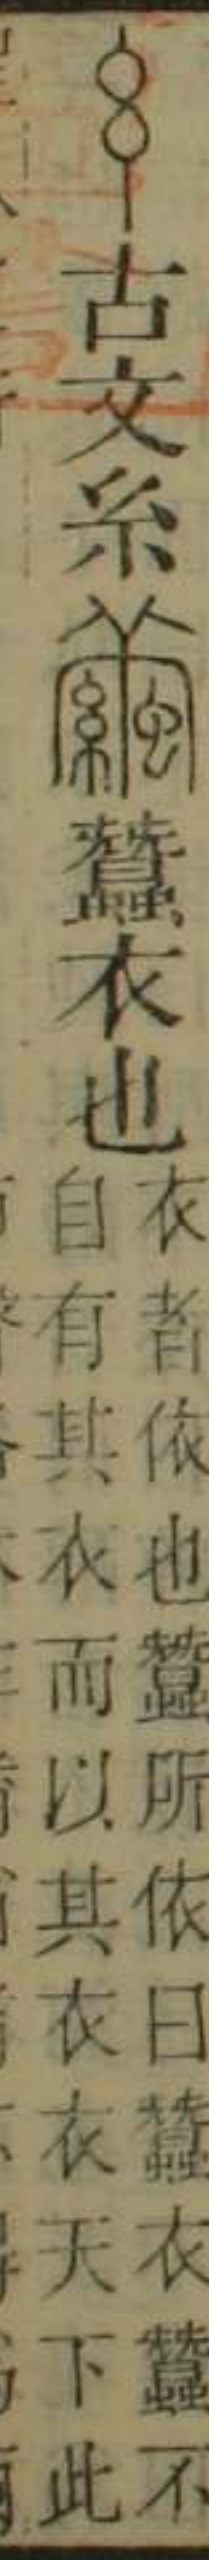 𢆯古文糸繭蠶衣也
衣者依也蠶所依曰蠶衣蠶不
自有其衣而以其衣衣天下此